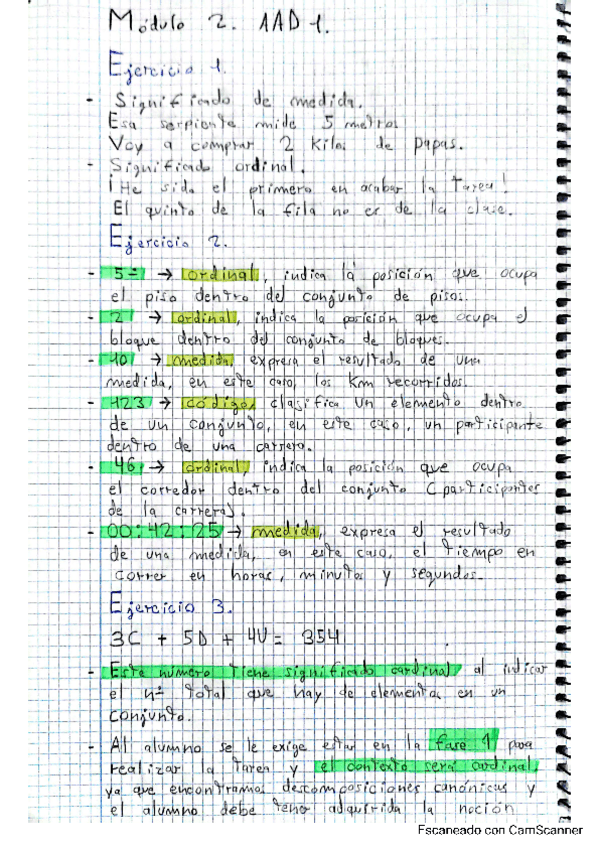 Módulo 2. AAD 1.
Ejercicio 1.
- Significado de medida.
Esa serpiente mide 5 metros
Voy a comprar 2 kilos de papas.
- Significado ordinal.
¡He sido el primero en acabar la tarea!
El quinto de la fila no es de la clase.
Ejercicio 2.
- 5º → ordinal, indica la posición que ocupa
el piso dentro del conjunto de pisos.
- 2 → ordinal, indica la posición que ocupa el
bloque dentro del conjunto de bloques.
- 10 → medida, expresa el resultado de una
medida, en este caso, los Km recorridos.
- 423 → código, clasifica un elemento dentro
de un conjunto, en este caso, un participante
dentro de una carrera.
- 46 → ordinal, indica la posición que ocupa
el corredor dentro del conjunto (participantes
de la carrera).
- 00:42:25 → medida, expresa el resultado
de una medida, en este caso, el tiempo en
correr en horas, minutos y segundos.
Ejercicio 3.
3C + 5D + 4U = 354
- Este número tiene significado cardinal al indicar
el nº total que hay de elementos en un
conjunto.
- Al alumno se le exige estar en la fase 1 para
realizar la tarea y el contexto será cardinal,
ya que encontramos descomposiciones canónicas y
el alumno debe tener adquirida la noción
Escaneado con CamScanner